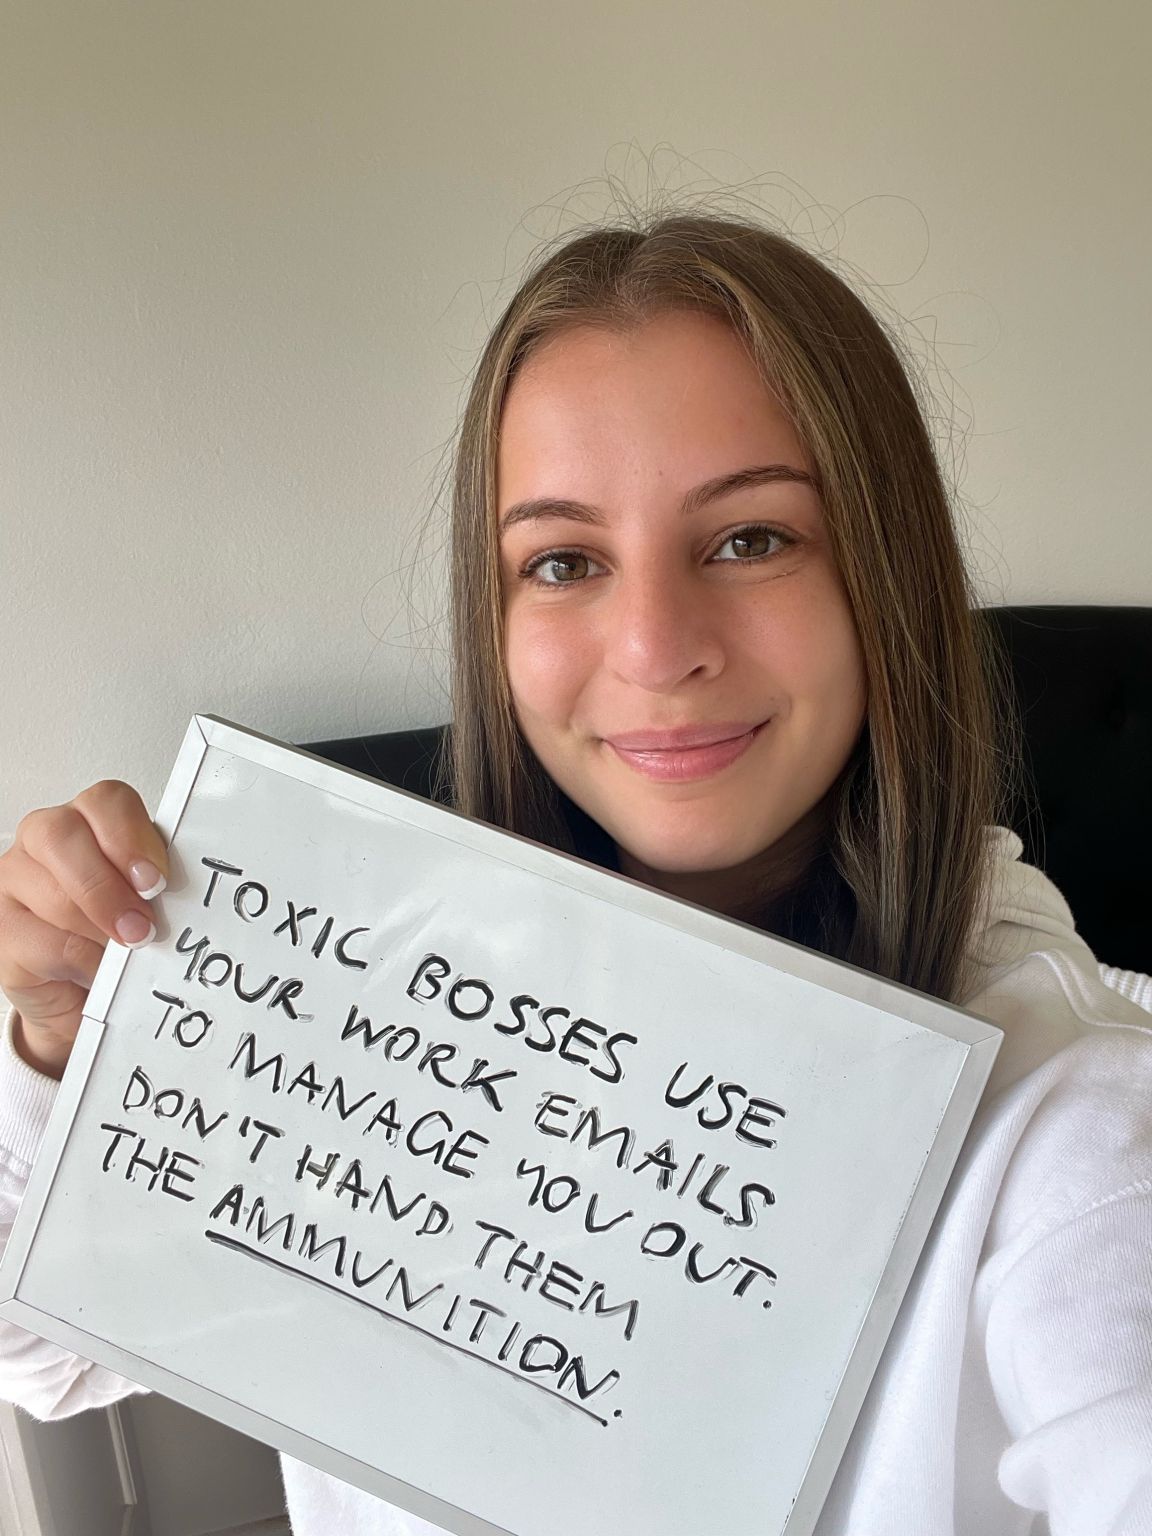 TOXIC BOSSES USE
YOUR WORK EMAILS
TO MANAGE YOU OUT.
DON'T HAND THEM
THE AMMUNITION.